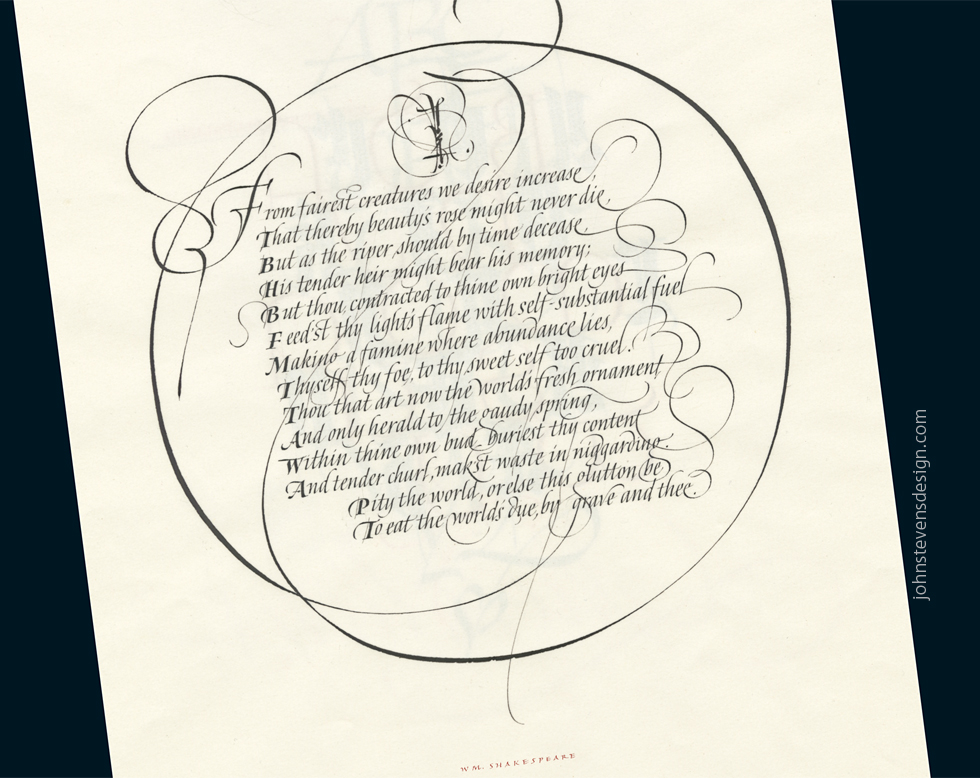 I.
From fairest creatures we desire increase,
That thereby beauty's rose might never die,
But as the riper should by time decease,
His tender heir might bear his memory;
But thou, contracted to thine own bright eyes
Feed'st thy light's flame with self-substantial fuel
Making a famine where abundance lies,
Thyself thy foe, to thy sweet self too cruel.
Thou that art now the world's fresh ornament
And only herald to the gaudy spring,
Within thine own bud buriest thy content
And tender churl, mak'st waste in niggarding.
Pity the world, or else this glutton be
To eat the world's due, by grave and thee.
WM. SHAKESPEARE
johnstevensdesign.com